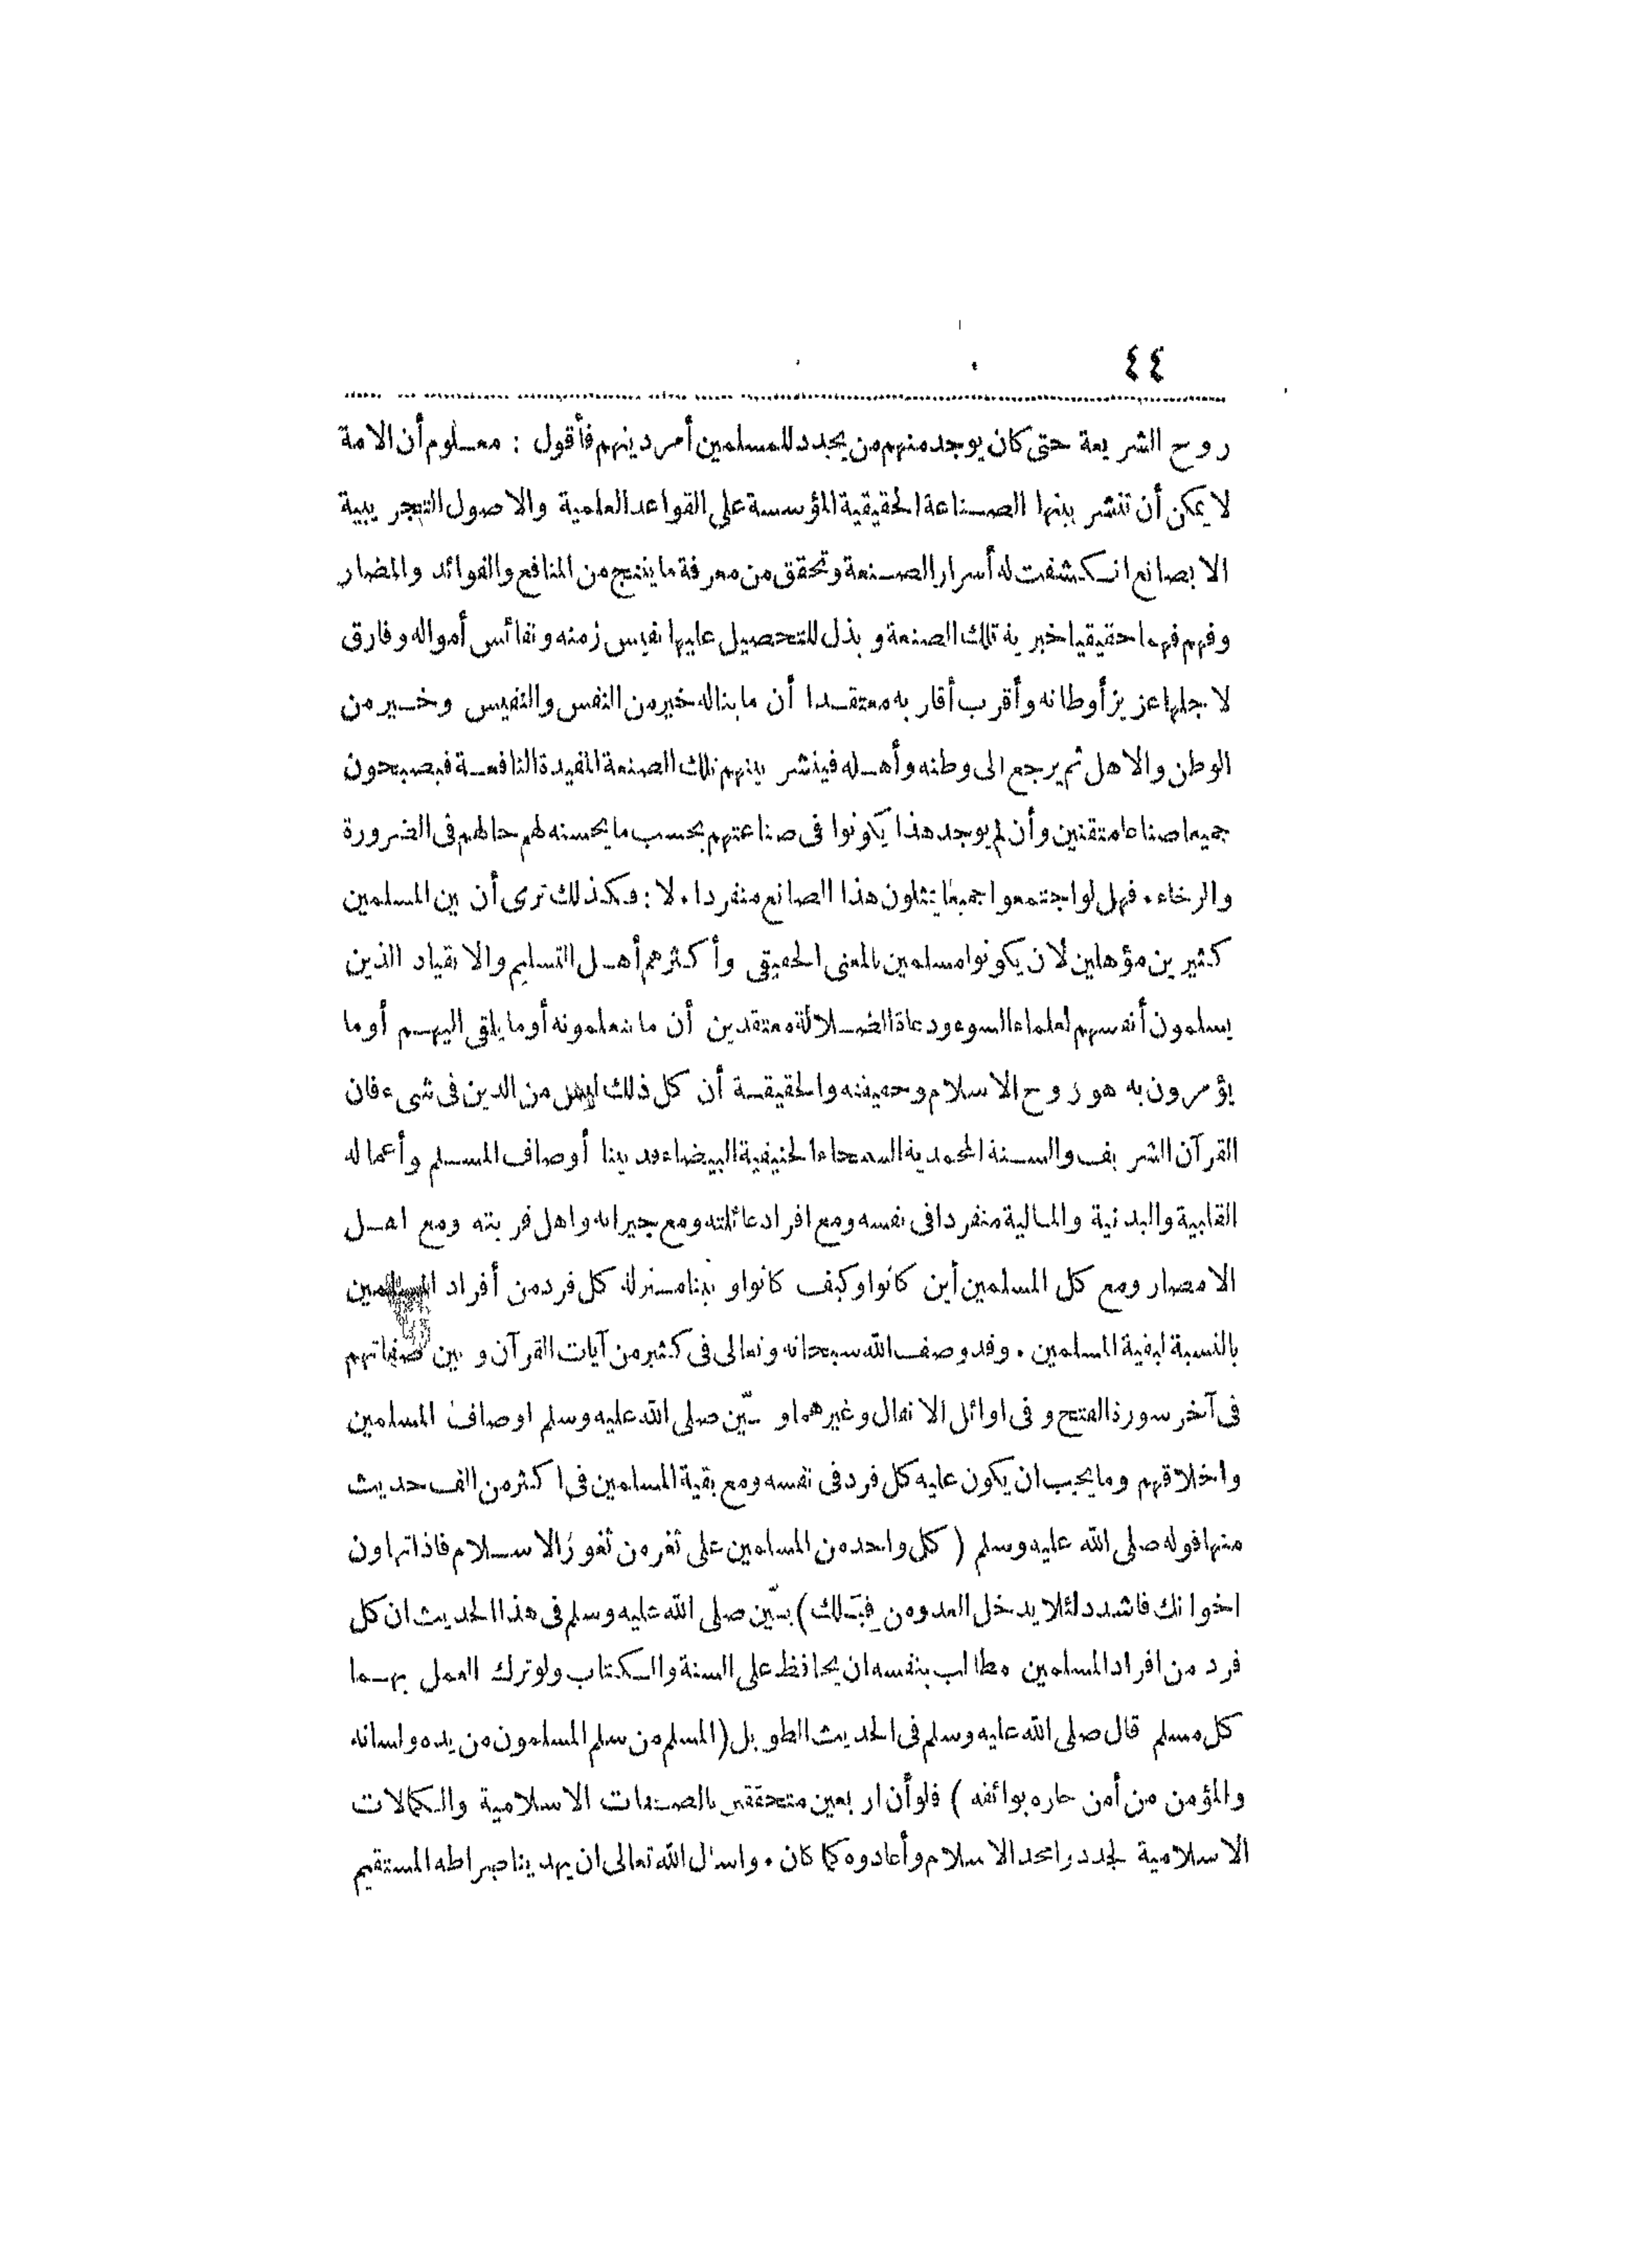 ٤٤
روح الشريعة حتى كان يوجد منهم من يجدد للمسلمين أمر دينهم فأقول : معلوم أن الامة
لا يمكن أن تنشر بينها الصناعة الحقيقية المؤسسة على القواعد العلمية والاصول التجريبية
الا بصانع انكشفت له أسرار الصنعة وتحقق من معرفة ما ينتج من المنافع والفوائد والمضار
وفهم فهما حقيقيا خبرية تلك الصنعة وبذل للتحصيل عليها نفيس زمنه ونفائس أمواله وفارق
لاجلها عزيز أوطانه وأقرب أقاربه معتقدا أن ما يناله خير من النفس والنفيس وخير من
الوطن والاهل ثم يرجع الى وطنه وأهله فينشر بينهم تلك الصنعة المفيدة النافعة فيصبحون
جميعا صناعا متقنين وأن لم يوجد هذا يكونوا فى صناعتهم بحسب ما يحسنه لهم حالهم فى الضرورة
والرخاء . فهل لو اجتمعوا جميعا يمثلون هذا الصانع منفردا . لا : فكذلك ترى أن بين المسلمين
كثيرين مؤهلين لان يكونوا مسلمين بالمعنى الحقيقى وأكثرهم أهل التسليم والانقياد الذين
يسلمون أنفسهم لعلماء السوء ودعاة الضلالة معتقدين أن ما يتعلمونه أو ما يلقى اليهم أو ما
يؤمرون به هو روح الاسلام وحقيقته والحقيقة أن كل ذلك ليس من الدين فى شىء فان
القرآن الشريف والسنة المحمدية السمحاء الحنيفية البيضاء قد بينا أوصاف المسلم وأعماله
القلبية والبدنية والمالية منفردا فى نفسه ومع افراد عائلته ومع جيرانه واهل قريته ومع اهل
الامصار ومع كل المسلمين أين كانوا وكيف كانوا وبينا منزلة كل فرد من أفراد المسلمين
بالنسبة لبقية المسلمين . وقد وصف الله سبحانه وتعالى فى كثير من آيات القرآن وبين صفاتهم
فى آخر سورة الفتح وفى اوائل الانفال وغيرهما وبيّن صلى الله عليه وسلم اوصاف المسلمين
واخلاقهم وما يجب ان يكون عليه كل فرد فى نفسه ومع بقية المسلمين فى اكثر من الف حديث
منها قوله صلى الله عليه وسلم ( كل واحد من المسلمين على ثغر من ثغور الاسلام فاذا تهاون
اخوانك فاشدد لئلا يدخل العدو من قبلك ) بيّن صلى الله عليه وسلم فى هذا الحديث ان كل
فرد من افراد المسلمين مطالب بنفسه ان يحافظ على السنة والكتاب ولو ترك العمل بهما
كل مسلم قال صلى الله عليه وسلم فى الحديث الطويل ( المسلم من سلم المسلمون من يده ولسانه
والمؤمن من أمن جاره بوائقه ) فلو أن اربعين متحققين بالصفات الاسلامية والكمالات
الاسلامية لجددوا مجد الاسلام وأعادوه كما كان . واسأل الله تعالى ان يهدينا صراطه المستقيم